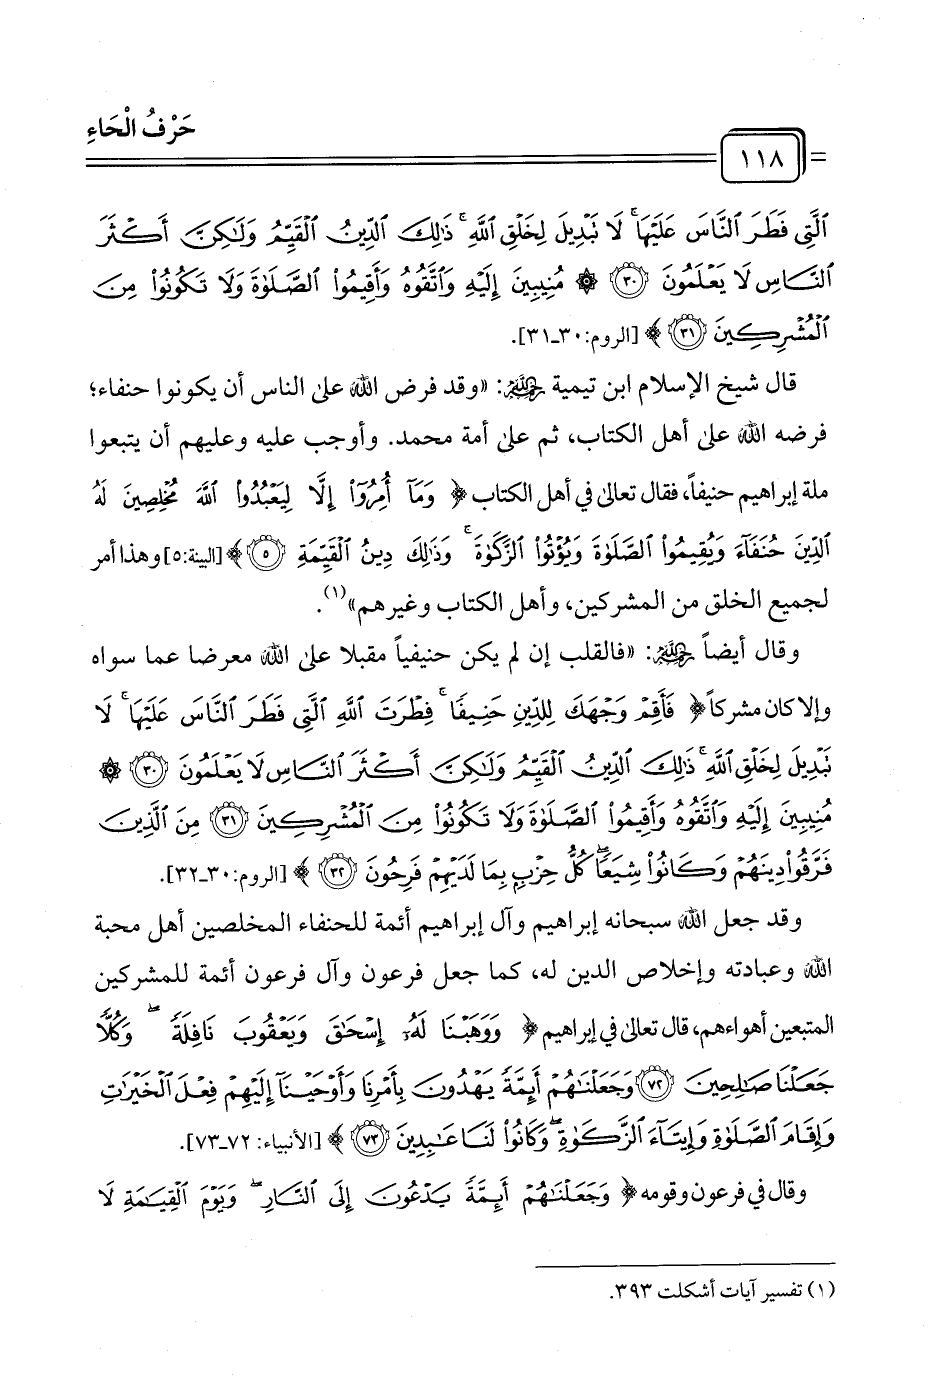 حَرْفُ الْحَاءِ
١١٨
ٱلَّتِى فَطَرَ ٱلنَّاسَ عَلَيْهَا ۚ لَا تَبْدِيلَ لِخَلْقِ ٱللَّهِ ۚ ذَٰلِكَ ٱلدِّينُ ٱلْقَيِّمُ وَلَٰكِنَّ أَكْثَرَ
ٱلنَّاسِ لَا يَعْلَمُونَ ٣٠ ۞ مُنِيبِينَ إِلَيْهِ وَٱتَّقُوهُ وَأَقِيمُوا۟ ٱلصَّلَوٰةَ وَلَا تَكُونُوا۟ مِنَ
ٱلْمُشْرِكِينَ ٣١ ﴾ [الروم:٣٠ـ٣١].
قال شيخ الإسلام ابن تيمية رحمه الله: «وقد فرض الله على الناس أن يكونوا حنفاء؛
فرضه الله على أهل الكتاب، ثم على أمة محمد. وأوجب عليه وعليهم أن يتبعوا
ملة إبراهيم حنيفاً، فقال تعالى في أهل الكتاب ﴿ وَمَآ أُمِرُوٓا۟ إِلَّا لِيَعْبُدُوا۟ ٱللَّهَ مُخْلِصِينَ لَهُ
ٱلدِّينَ حُنَفَآءَ وَيُقِيمُوا۟ ٱلصَّلَوٰةَ وَيُؤْتُوا۟ ٱلزَّكَوٰةَ ۚ وَذَٰلِكَ دِينُ ٱلْقَيِّمَةِ ٥ ﴾ [البينة:٥] وهذا أمر
لجميع الخلق من المشركين، وأهل الكتاب وغيرهم»(١).
وقال أيضاً رحمه الله: «فالقلب إن لم يكن حنيفياً مقبلا على الله معرضا عما سواه
وإلا كان مشركاً ﴿ فَأَقِمْ وَجْهَكَ لِلدِّينِ حَنِيفًا ۚ فِطْرَتَ ٱللَّهِ ٱلَّتِى فَطَرَ ٱلنَّاسَ عَلَيْهَا ۚ لَا
تَبْدِيلَ لِخَلْقِ ٱللَّهِ ۚ ذَٰلِكَ ٱلدِّينُ ٱلْقَيِّمُ وَلَٰكِنَّ أَكْثَرَ ٱلنَّاسِ لَا يَعْلَمُونَ ٣٠ ۞
مُنِيبِينَ إِلَيْهِ وَٱتَّقُوهُ وَأَقِيمُوا۟ ٱلصَّلَوٰةَ وَلَا تَكُونُوا۟ مِنَ ٱلْمُشْرِكِينَ ٣١ مِنَ ٱلَّذِينَ
فَرَّقُوا۟ دِينَهُمْ وَكَانُوا۟ شِيَعًا ۖ كُلُّ حِزْبٍۭ بِمَا لَدَيْهِمْ فَرِحُونَ ٣٢ ﴾ [الروم:٣٠ـ٣٢].
وقد جعل الله سبحانه إبراهيم وآل إبراهيم أئمة للحنفاء المخلصين أهل محبة
الله وعبادته وإخلاص الدين له، كما جعل فرعون وآل فرعون أئمة للمشركين
المتبعين أهواءهم، قال تعالى في إبراهيم ﴿ وَوَهَبْنَا لَهُۥٓ إِسْحَٰقَ وَيَعْقُوبَ نَافِلَةً ۖ وَكُلًّا
جَعَلْنَا صَٰلِحِينَ ٧٢ وَجَعَلْنَٰهُمْ أَئِمَّةً يَهْدُونَ بِأَمْرِنَا وَأَوْحَيْنَآ إِلَيْهِمْ فِعْلَ ٱلْخَيْرَٰتِ
وَإِقَامَ ٱلصَّلَوٰةِ وَإِيتَآءَ ٱلزَّكَوٰةِ ۖ وَكَانُوا۟ لَنَا عَٰبِدِينَ ٧٣ ﴾ [الأنبياء: ٧٢ـ٧٣].
وقال في فرعون وقومه ﴿ وَجَعَلْنَٰهُمْ أَئِمَّةً يَدْعُونَ إِلَى ٱلنَّارِ ۖ وَيَوْمَ ٱلْقِيَٰمَةِ لَا
(١) تفسير آيات أشكلت ٣٩٣.